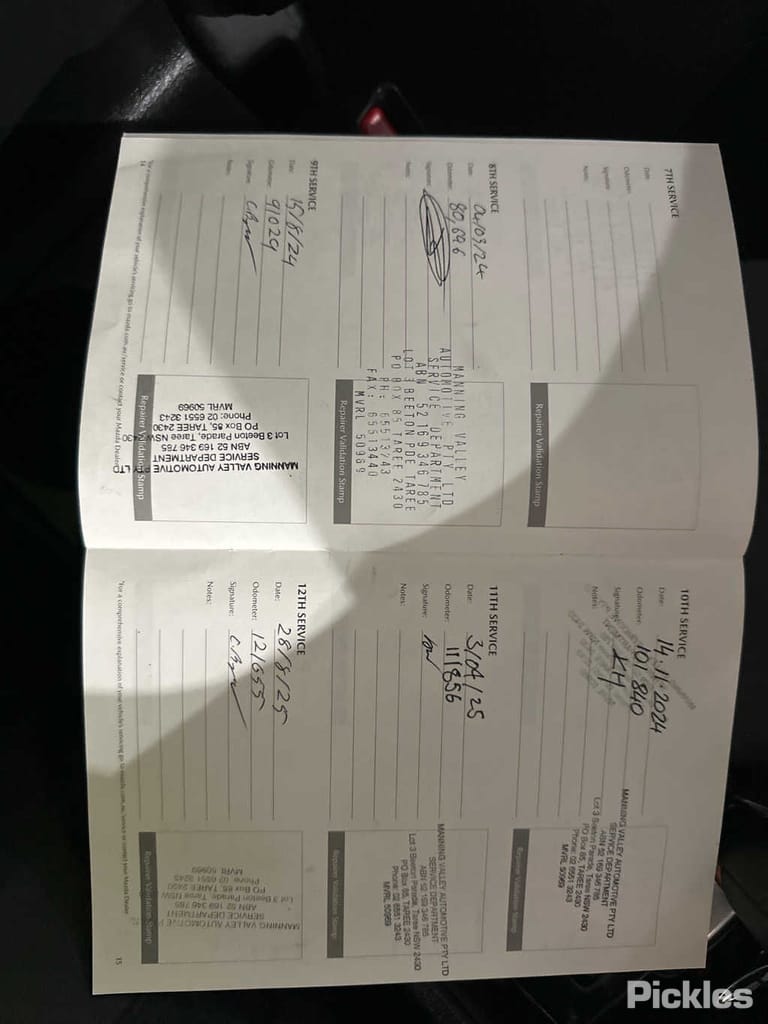 7TH SERVICE
Date:
Odometer:
Signature:
Notes:
Repairer Validation Stamp
8TH SERVICE
Date: 04/03/24
Odometer: 80,696
Signature:
Notes:
MANNING VALLEY
AUTOMOTIVE PTY LTD
SERVICE DEPARTMENT
ABN 52 169 346 785
LOT 3 BEETON PDE TAREE
PO BOX 85 TAREE 2430
PH: 65513243
FAX: 65513440
MVRL 50969
Repairer Validation Stamp
9TH SERVICE
Date: 15/8/24
Odometer: 91029
Signature:
Notes:
MANNING VALLEY AUTOMOTIVE PTY LTD
SERVICE DEPARTMENT
ABN 52 169 346 785
Lot 3 Beeton Parade, Taree NSW 2430
PO Box 85, TAREE 2430
Phone: 02 6551 3243
MVRL 50969
Repairer Validation Stamp
*For a comprehensive explanation of your vehicle's servicing go to mazda.com.au/service or contact your Mazda Dealer
14
10TH SERVICE
Date: 14.11.2024
Odometer: 101 840
Signature: KH
Notes:
MANNING VALLEY AUTOMOTIVE PTY LTD
SERVICE DEPARTMENT
ABN 52 169 346 785
Lot 3 Beeton Parade, Taree NSW 2430
PO Box 85, TAREE 2430
Phone: 02 6551 3243
MVRL 50969
Repairer Validation Stamp
11TH SERVICE
Date: 3/04/25
Odometer: 111856
Signature:
Notes:
MANNING VALLEY AUTOMOTIVE PTY LTD
SERVICE DEPARTMENT
ABN 52 169 346 785
Lot 3 Beeton Parade, Taree NSW 2430
PO Box 85, TAREE 2430
Phone: 02 6551 3243
MVRL 50969
Repairer Validation Stamp
12TH SERVICE
Date: 28/8/25
Odometer: 121655
Signature:
Notes:
MANNING VALLEY AUTOMOTIVE
SERVICE DEPARTMENT
ABN 52 169 346 785
Lot 3 Beeton Parade, Taree NSW
PO Box 85, TAREE 2430
Phone 02 6551 3243
MVRL 50969
Repairer Validation Stamp
*For a comprehensive explanation of your vehicle's servicing go to mazda.com.au/service or contact your Mazda Dealer
15
Pickles